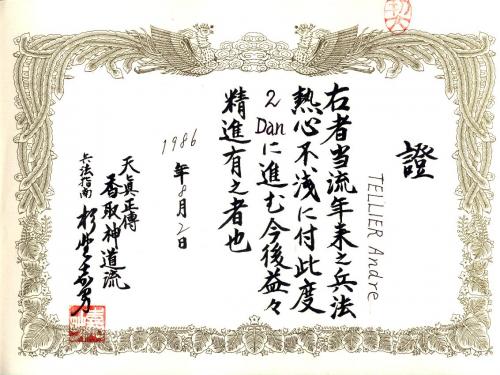 證
TELLIER Andre
右者当流年来之兵法
熱心不浅に付此度
2 Danに進む今後益々
精進有之者也
1986年8月2日
天真正傳
香取神道流
兵法指南